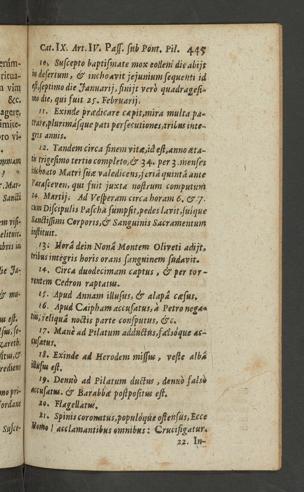 Cat. IX. Art. IV. Pass. sub Pont. Pil. 445
10. Suscepto baptismate mox eodem die abijt
in desertum, & inchoavit jejunium sequenti id
est, septimo die Januarij, finijt verò quadragesi-
mo die, qui fuit 25. Februarij.
11. Exinde prædicare cæpit, mira multa pa-
trare, plurimasque pati persecutiones, tribus inte-
gris annis.
12. Tandem circa finem vitæ, id est, anno æta-
tis trigesimo tertio completo, & 34. per 3. menses
inchoato Matri suæ valedicens, feriâ quintâ ante
Parasceven, qui fuit juxta nostrum computum
24. Martij. Ad Vesperam circa horam 6. & 7.
cum Discipulis Pascha sumpsit, pedes lavit, suique
Sanctissimi Corporis, & Sanguinis Sacramentum
instituit.
13. Horâ dein Nonâ Montem Oliveti adijt,
tribus integris horis orans sanguinem sudavit.
14. Circa duodecimam captus, & per tor-
rentem Cedron raptatus.
15. Apud Annam illusus, & alapâ cæsus.
16. Apud Caipham accusatus, à Petro nega-
tus, reliquâ noctis parte consputus, &c.
17. Manè ad Pilatum adductus, falsóque ac-
cusatus.
18. Exinde ad Herodem missus, veste albâ
illusus est.
19. Denuò ad Pilatum ductus, denuò falsò
accusatus, & Barabbæ postpositus est.
20. Flagellatus.
21. Spinis coronatus, populóque ostensus, Ecce
Homo! acclamantibus omnibus: Crucifigatur.
22. In-